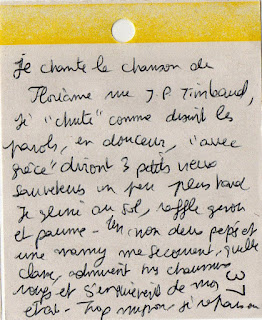 Je chante la chanson de
Floriane rue J.P. Timbaud,
Je "chute" comme disent les
parols, en douceur, "avec
grâce" diront 3 petits vieux
sauveteurs un peu plus tard
Je glisse au sol, raffle genou
et paume - Un non deux papis et
une mamy me secourent, quelle
classe, admirent mes chaussures
rouges et s'enquièrent de mon
état - Trop mignon je repars en